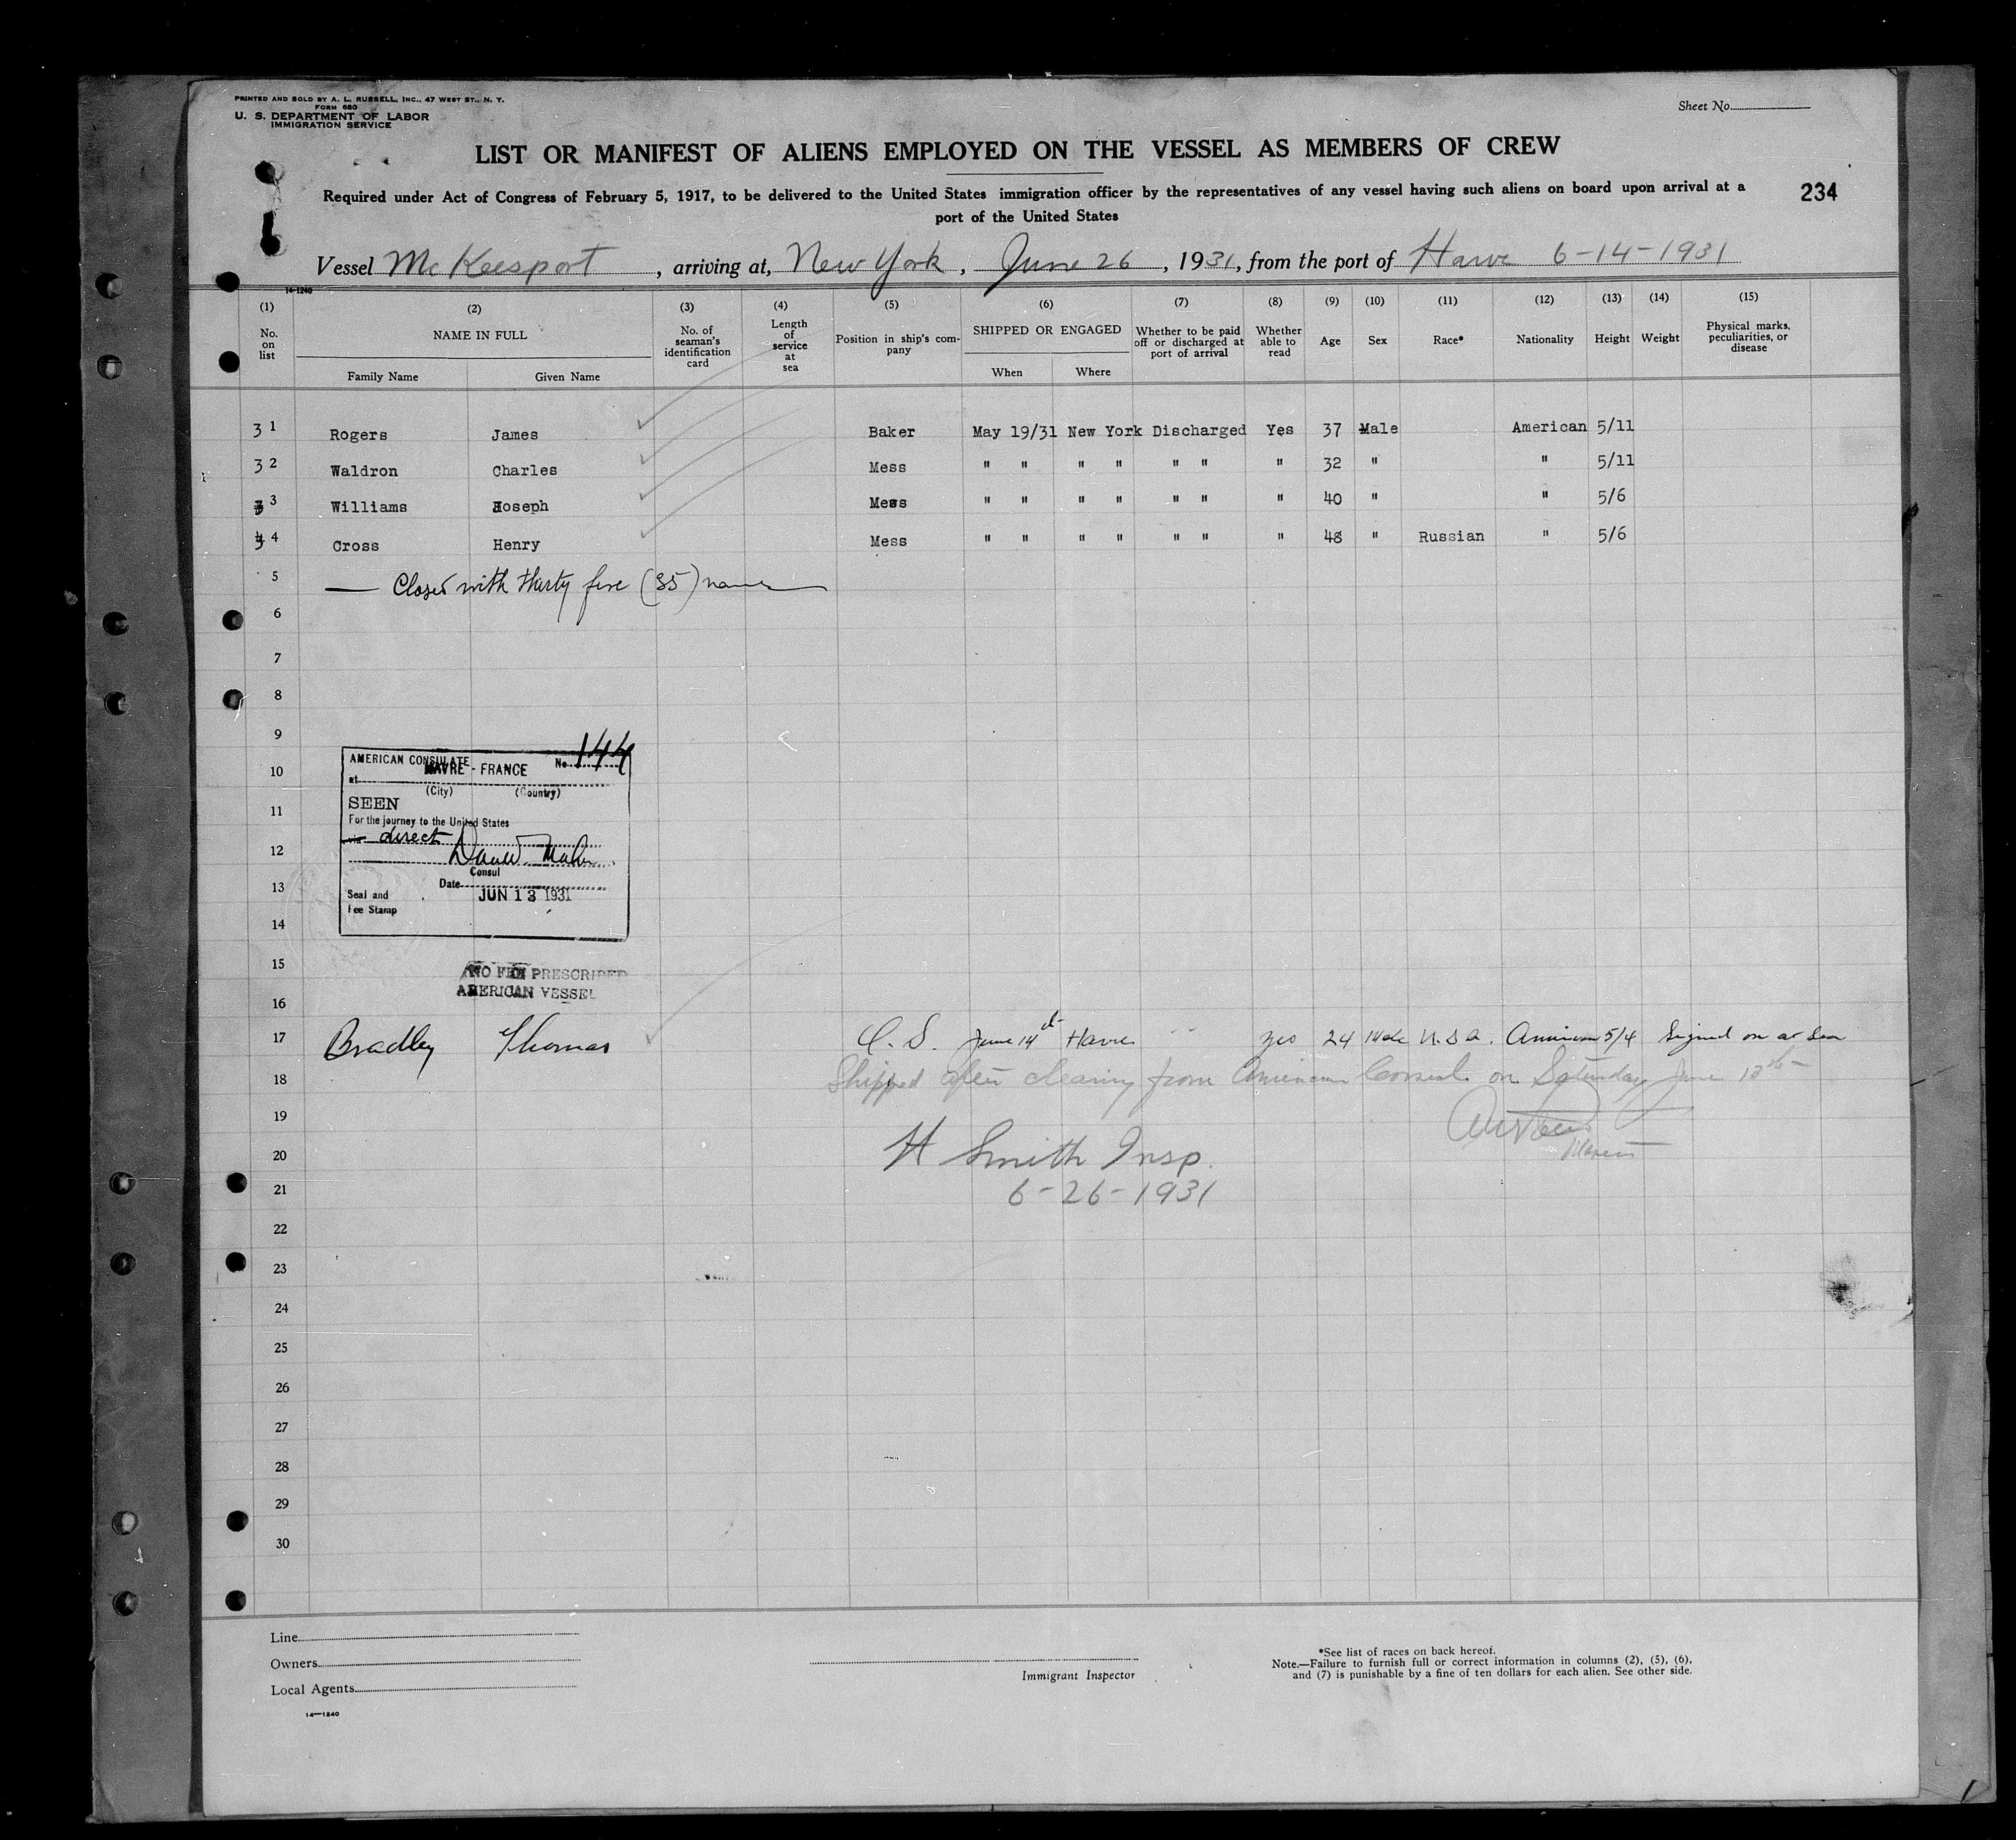 PRINTED AND SOLD BY A. L. RUSSELL, INC., 47 WEST ST., N. Y.
FORM 680
U. S. DEPARTMENT OF LABOR
IMMIGRATION SERVICE
Sheet No.
LIST OR MANIFEST OF ALIENS EMPLOYED ON THE VESSEL AS MEMBERS OF CREW
Required under Act of Congress of February 5, 1917, to be delivered to the United States immigration officer by the representatives of any vessel having such aliens on board upon arrival at a
port of the United States
234
Vessel McKeesport, arriving at, New York, June 26, 1931, from the port of Havre 6-14-1931
14-1240
(1) (2) (3) (4) (5) (6) (7) (8) (9) (10) (11) (12) (13) (14) (15)
No. on list NAME IN FULL Family Name Given Name No. of seaman's identification card Length of service at sea Position in ship's com-pany SHIPPED OR ENGAGED When Where Whether to be paid off or discharged at port of arrival Whether able to read Age Sex Race* Nationality Height Weight Physical marks, peculiarities, or disease
3 1 Rogers James Baker May 19/31 New York Discharged Yes 37 Male American 5/11
3 2 Waldron Charles Mess " " " " " " " 32 " " 5/11
3 3 Williams Joseph Mess " " " " " " " 40 " " 5/6
3 4 Cross Henry Mess " " " " " " " 48 " Russian " 5/6
5 Closed with thirty five (35) names
6
7
8
9
10
11
12
13
14
15
16
AMERICAN CONSULATE No. 144
at HAVRE - FRANCE
(City) (Country)
SEEN
For the journey to the United States
via direct
Consul
Date JUN 13 1931
Seal and
Fee Stamp
NO FEE PRESCRIBED
AMERICAN VESSEL
17 Bradley Thomas O.S. June 14th Havre yes 24 Male U.S.A. American 5/4 Signed on at Sea
18 Shipped after clearing from American Consul on Saturday June 13th
19
Master
20 H Smith Insp.
21 6-26-1931
22
23
24
25
26
27
28
29
30
Line
Owners
Local Agents
14—1240
Immigrant Inspector
*See list of races on back hereof.
Note.—Failure to furnish full or correct information in columns (2), (5), (6),
and (7) is punishable by a fine of ten dollars for each alien. See other side.